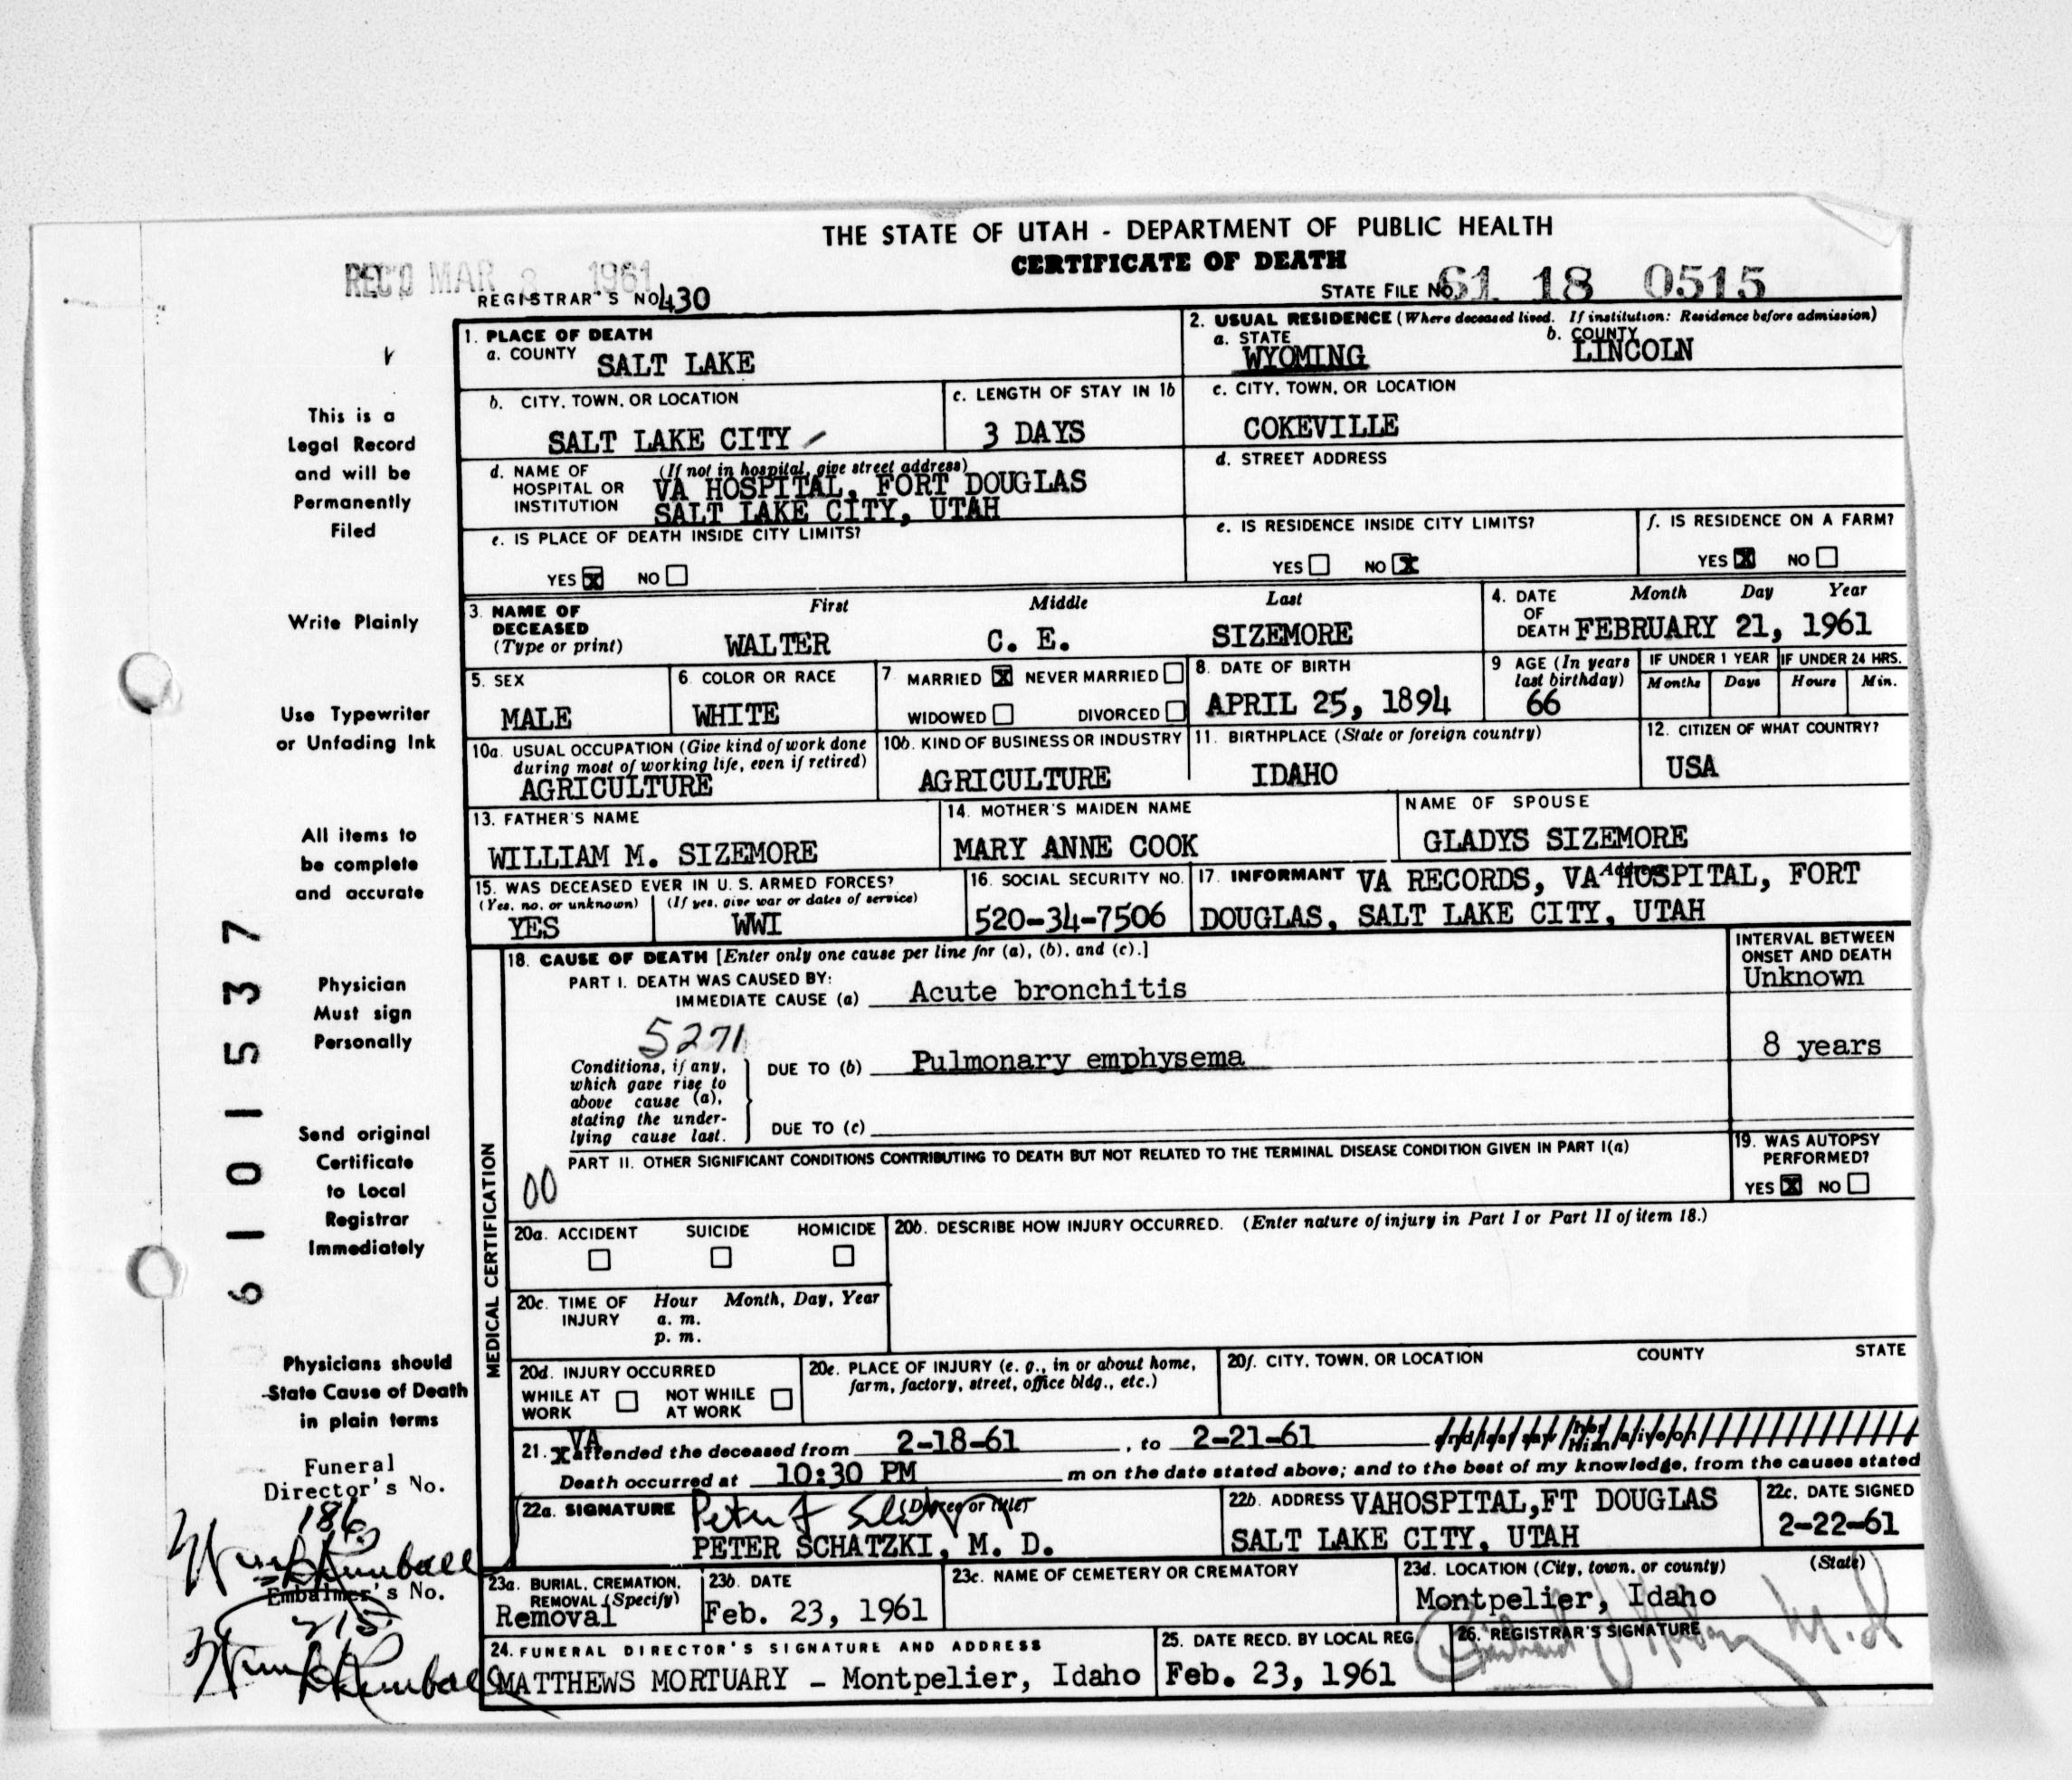 THE STATE OF UTAH - DEPARTMENT OF PUBLIC HEALTH
CERTIFICATE OF DEATH
REC'D MAR 1961
REGISTRAR'S NO. 430
STATE FILE NO. 61 18 0515
This is a
Legal Record
and will be
Permanently
Filed
Write Plainly
Use Typewriter
or Unfading Ink
All items to
be complete
and accurate
Physician
Must sign
Personally
Send original
Certificate
to Local
Registrar
Immediately
Physicians should
State Cause of Death
in plain terms
Funeral
Director's No.
186
Embalmer's No.
215
6101537
1. PLACE OF DEATH
a. COUNTY SALT LAKE
2. USUAL RESIDENCE (Where deceased lived. If institution: Residence before admission)
a. STATE WYOMING
b. COUNTY LINCOLN
b. CITY, TOWN, OR LOCATION
SALT LAKE CITY
c. LENGTH OF STAY IN 1b
3 DAYS
c. CITY, TOWN, OR LOCATION
COKEVILLE
d. NAME OF HOSPITAL OR INSTITUTION (If not in hospital, give street address)
VA HOSPITAL, FORT DOUGLAS
SALT LAKE CITY, UTAH
d. STREET ADDRESS
e. IS PLACE OF DEATH INSIDE CITY LIMITS?
YES X NO
e. IS RESIDENCE INSIDE CITY LIMITS?
YES NO X
f. IS RESIDENCE ON A FARM?
YES X NO
3. NAME OF DECEASED (Type or print)
First Middle Last
WALTER C. E. SIZEMORE
4. DATE OF DEATH Month Day Year
FEBRUARY 21, 1961
5. SEX
MALE
6. COLOR OR RACE
WHITE
7. MARRIED X NEVER MARRIED
WIDOWED DIVORCED
8. DATE OF BIRTH
APRIL 25, 1894
9 AGE (In years last birthday)
66
IF UNDER 1 YEAR
Months Days
IF UNDER 24 HRS.
Hours Min.
10a. USUAL OCCUPATION (Give kind of work done during most of working life, even if retired)
AGRICULTURE
10b. KIND OF BUSINESS OR INDUSTRY
AGRICULTURE
11. BIRTHPLACE (State or foreign country)
IDAHO
12. CITIZEN OF WHAT COUNTRY?
USA
13. FATHER'S NAME
WILLIAM M. SIZEMORE
14. MOTHER'S MAIDEN NAME
MARY ANNE COOK
NAME OF SPOUSE
GLADYS SIZEMORE
15. WAS DECEASED EVER IN U. S. ARMED FORCES?
(Yes, no, or unknown) (If yes, give war or dates of service)
YES WWI
16. SOCIAL SECURITY NO.
520-34-7506
17. INFORMANT Address
VA RECORDS, VA HOSPITAL, FORT
DOUGLAS, SALT LAKE CITY, UTAH
MEDICAL CERTIFICATION
18. CAUSE OF DEATH [Enter only one cause per line for (a), (b), and (c).]
INTERVAL BETWEEN ONSET AND DEATH
PART I. DEATH WAS CAUSED BY:
IMMEDIATE CAUSE (a) Acute bronchitis
Unknown
5271
Conditions, if any, which gave rise to above cause (a), stating the underlying cause last.
DUE TO (b) Pulmonary emphysema
8 years
DUE TO (c)
PART II. OTHER SIGNIFICANT CONDITIONS CONTRIBUTING TO DEATH BUT NOT RELATED TO THE TERMINAL DISEASE CONDITION GIVEN IN PART I(a)
00
19. WAS AUTOPSY PERFORMED?
YES X NO
20a. ACCIDENT SUICIDE HOMICIDE
20b. DESCRIBE HOW INJURY OCCURRED. (Enter nature of injury in Part I or Part II of item 18.)
20c. TIME OF INJURY Hour Month, Day, Year
a. m.
p. m.
20d. INJURY OCCURRED
WHILE AT WORK NOT WHILE AT WORK
20e. PLACE OF INJURY (e. g., in or about home, farm, factory, street, office bldg., etc.)
20f. CITY, TOWN, OR LOCATION COUNTY STATE
21. VA attended the deceased from 2-18-61, to 2-21-61 and last saw her him alive on
Death occurred at 10:30 PM m on the date stated above; and to the best of my knowledge, from the causes stated
22a. SIGNATURE (Degree or title)
PETER SCHATZKI, M. D.
22b. ADDRESS VAHOSPITAL,FT DOUGLAS
SALT LAKE CITY, UTAH
22c. DATE SIGNED
2-22-61
23a. BURIAL, CREMATION, REMOVAL (Specify)
Removal
23b. DATE
Feb. 23, 1961
23c. NAME OF CEMETERY OR CREMATORY
23d. LOCATION (City, town, or county) (State)
Montpelier, Idaho
24. FUNERAL DIRECTOR'S SIGNATURE AND ADDRESS
MATTHEWS MORTUARY - Montpelier, Idaho
25. DATE RECD. BY LOCAL REG.
Feb. 23, 1961
26. REGISTRAR'S SIGNATURE